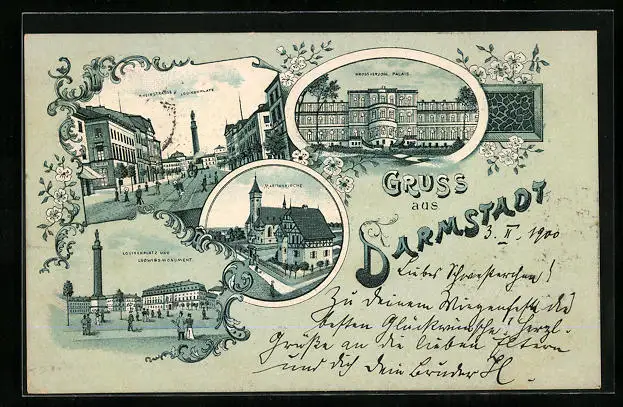 RHEINSTRASSE U.
LOUISENPLATZ
GROSSHERZOGL. PALAIS.
MARTINSKIRCHE
LOUISENPLATZ UND
LUDWIGS-MONUMENT.
GRUSS
aus
DARMSTADT
3. V. 1900
Liebes Schwesterchen!
Zu deinem Wiegenfeste die
besten Glückwünsche! Herzl.
Grüße an die lieben Eltern
und dich dein Bruder